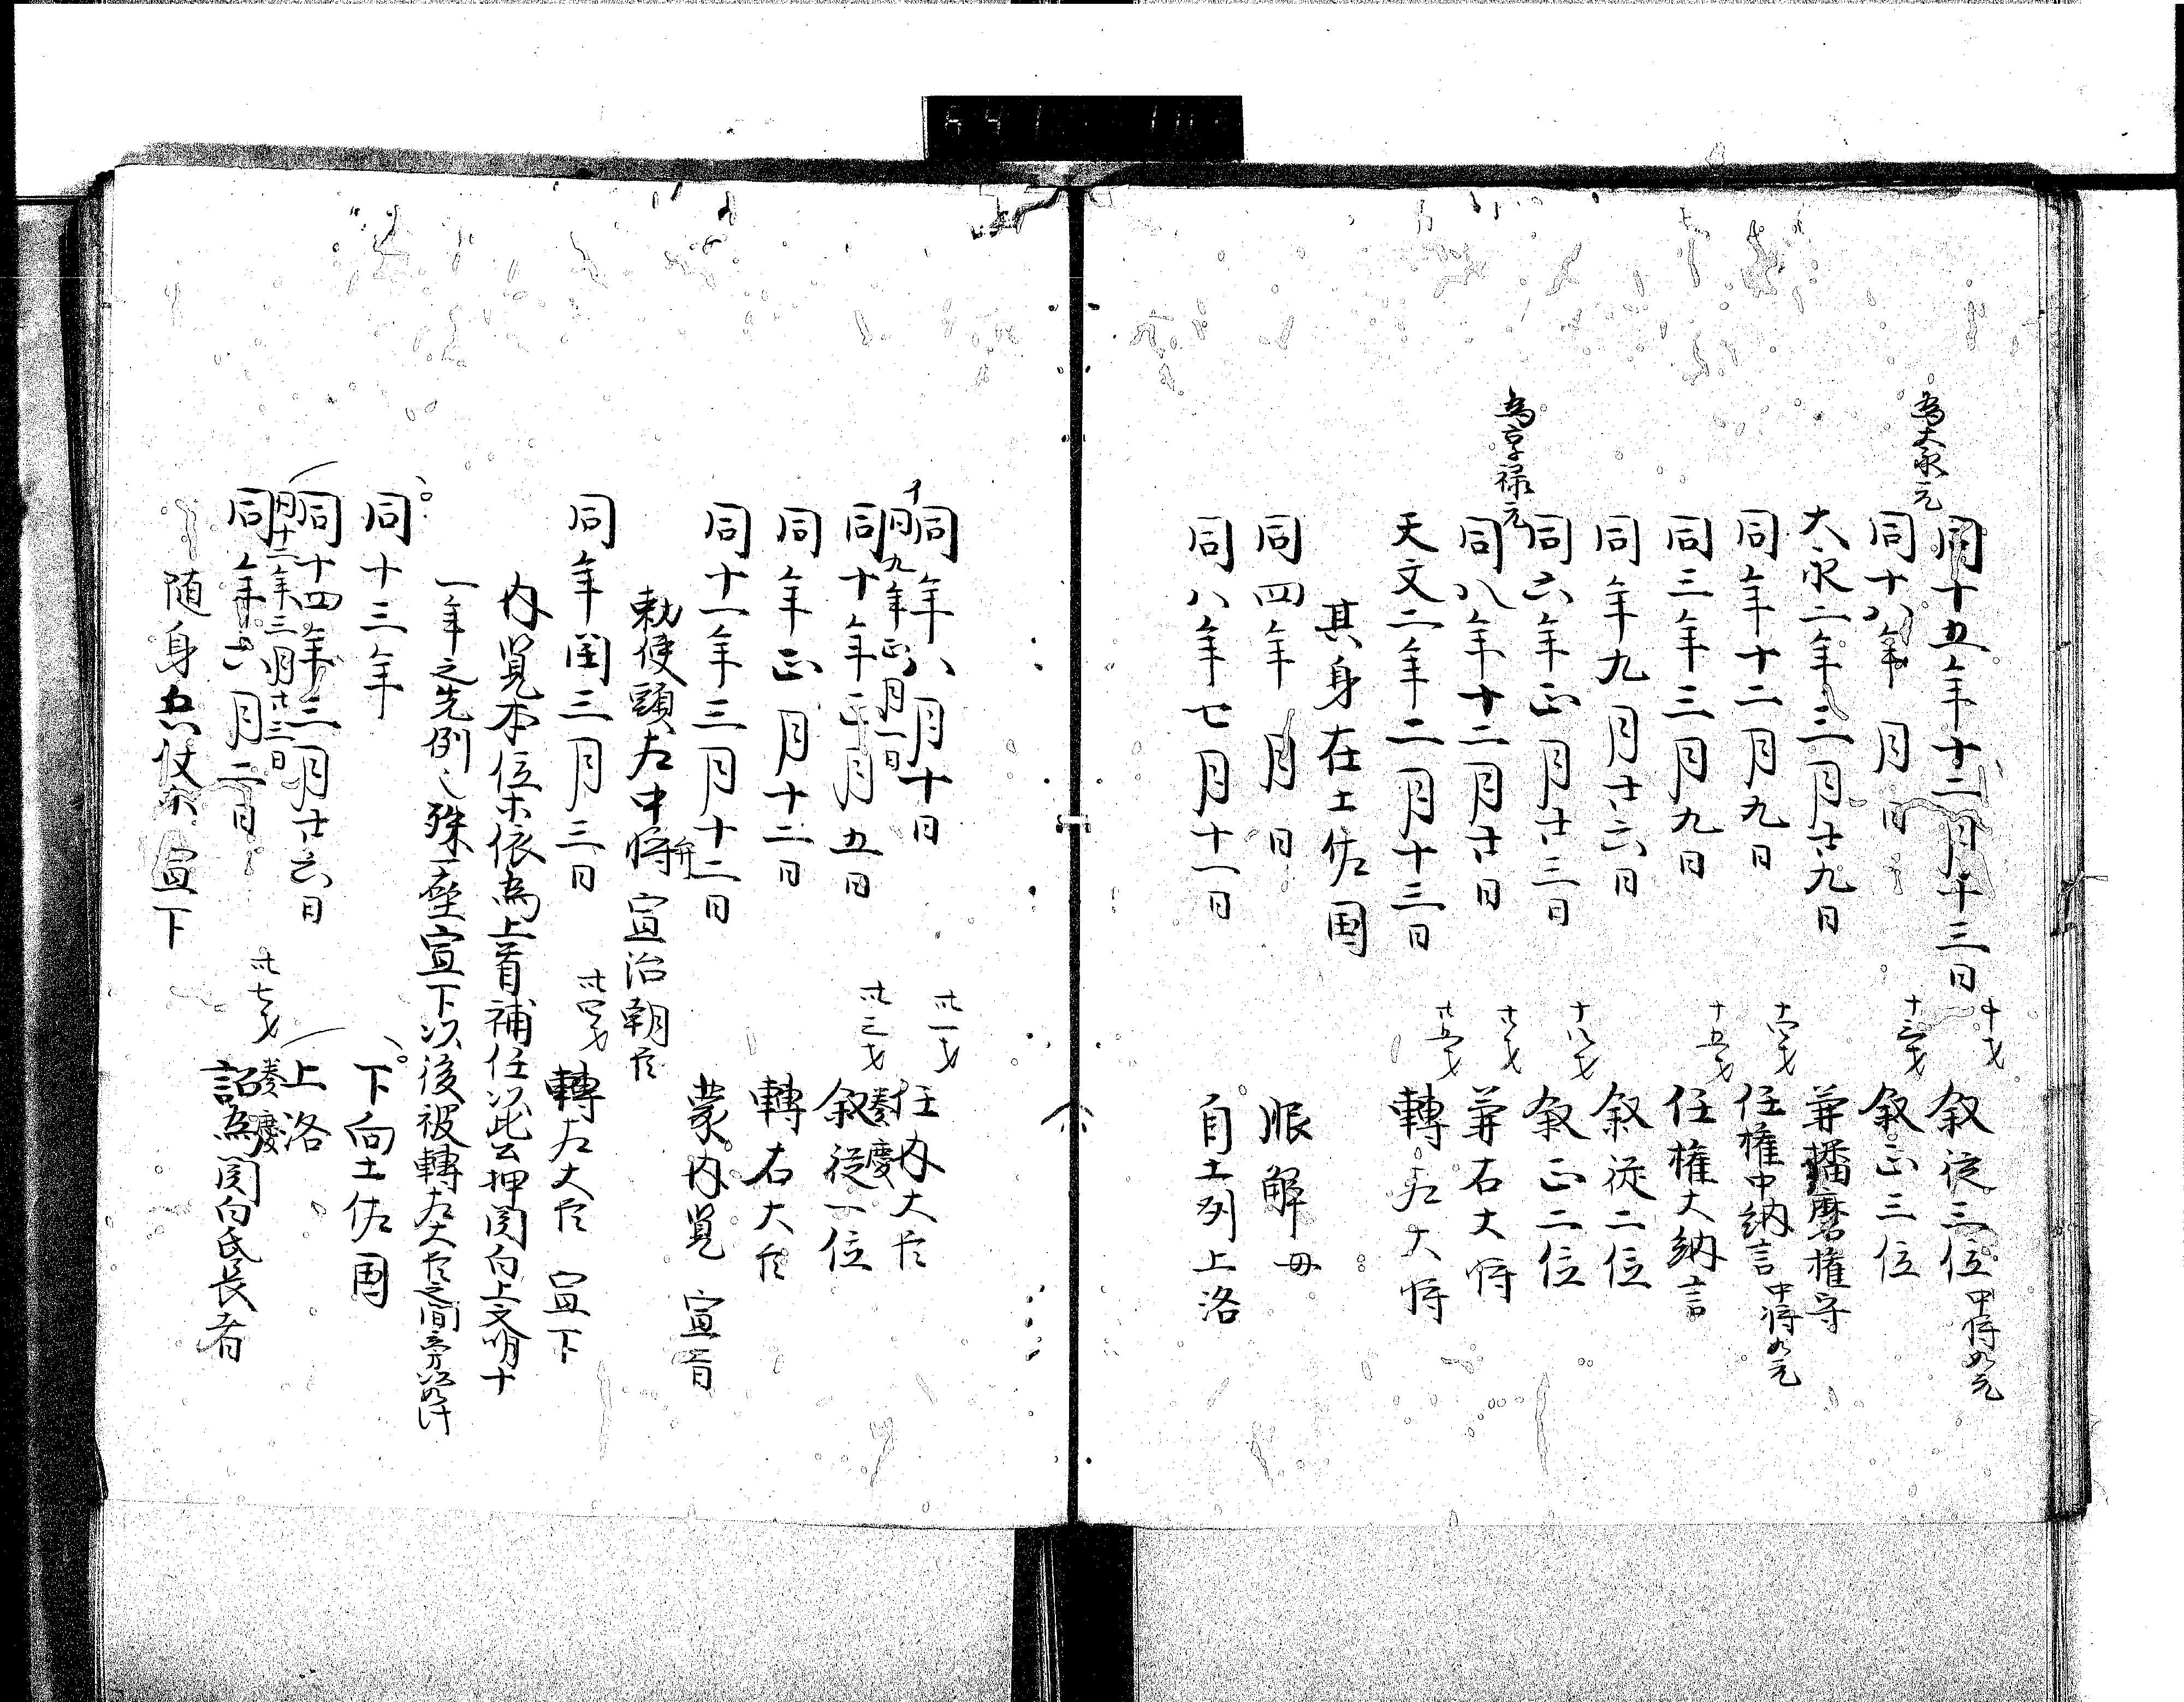 同十五年十二月十三日 十才 叙従三位 中将如元
為大永元
同十八年 月 日 十三才 叙正三位
大永二年三月廿九日 兼播磨権守
同年十二月九日 十四才 任権中納言 中将如元
同三年三月九日 十五才 任権大納言
同年九月廿六日 叙従二位
同六年正月廿三日 十八才 叙正二位
為享禄元
同八年十二月廿日 廿才 兼右大将
天文二年二月十三日 廿五才 轉左大将
其身在土佐国
同四年 月 日 服解母
同八年七月十一日 自土州上洛
同年八月十日 卅一才 任内大臣
同九年正月一日 奏慶
同十年正月五日 卅二才 叙従一位
同年正月十二日 轉右大臣
同十一年三月十二日 蒙内覧 宣旨
勅使頭左中将 宣治朝臣
同年閏三月三日 卅四才 轉左大臣 宣下
内覧本位未依為上首補任以此公押関白上文明十
一年之先例々殊一座宣下以後被轉左大臣之間
同十三年 下向土佐国
同十四年三月廿六日 上洛
同十二年三月廿三日 奏慶
同年六月二日 卅七才 詔為関白氏長者
随身兵仗 宣下